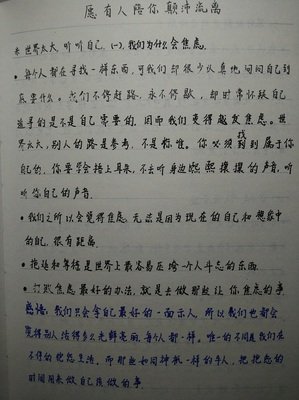 愿有人陪你颠沛流离
* 世界太大,听听自己。(一),我们为什么会焦虑。
• 每个人都在寻找一样东西,可我们却很少认真地问问自己到
底要什么。我们不停赶路,永不停歇,却时常怀疑自己
追寻的是不是自己需要的,因而我们变得越发焦虑。世
界太大,别人的路是参考,不是标准。你必须找到属于你
自己的,你要学会捂上耳朵,不去听身边熙熙攘攘的声音,听
听你自己的声音。
• 我们之所以会觉得焦虑,无非是因为现在的自己和想象中
的自己,很有距离。
• 拖延和等待是世界上最容易压垮一个人斗志的东西。
• 打败焦虑最好的办法,就是去做那些让你焦虑的事
感悟:我们只会拿自己最好的一面示人,所以我们也都会
觉得别人活得多么光鲜亮丽,每个人都一样。唯一的不同是我们在
不停的抱怨生活。而那些如同神祇一样的牛人,把抱怨的
时间用来做自己该做的事